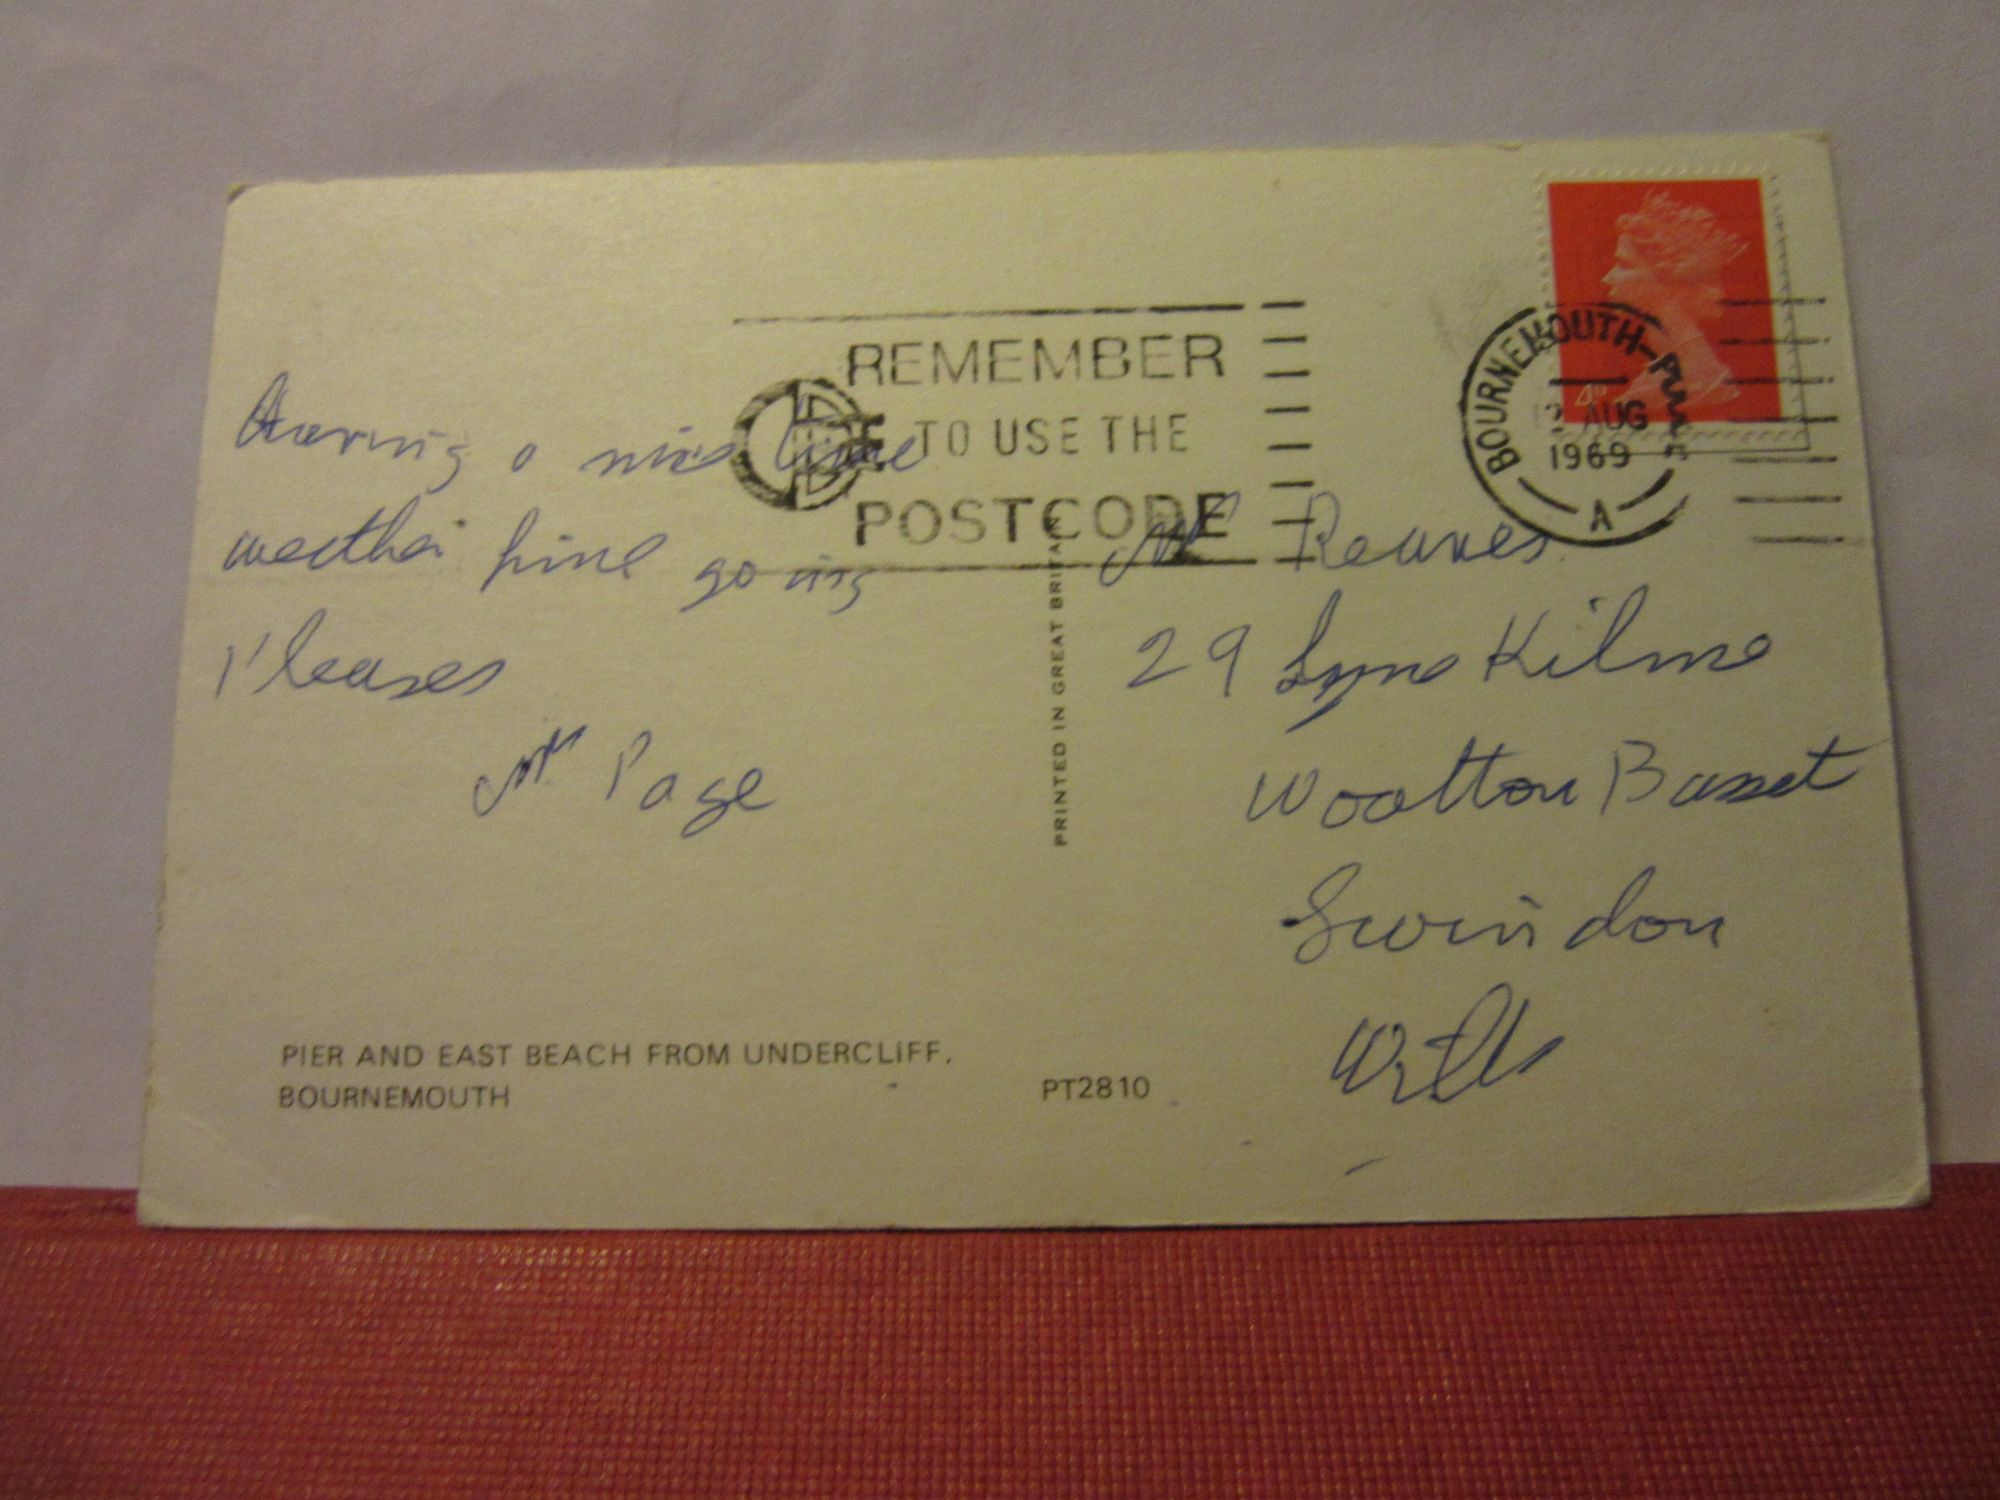 REMEMBER
TO USE THE
POSTCODE
BOURNEMOUTH-POOLE
AUG
1969
A
4D
Having a nice time
weather fine going
Pleases
Mr Page
PRINTED IN GREAT BRITAIN
Reeves
29 Lyne Kilme
Wootton Basset
Swindon
Wilts
PIER AND EAST BEACH FROM UNDERCLIFF.
BOURNEMOUTH
PT2810